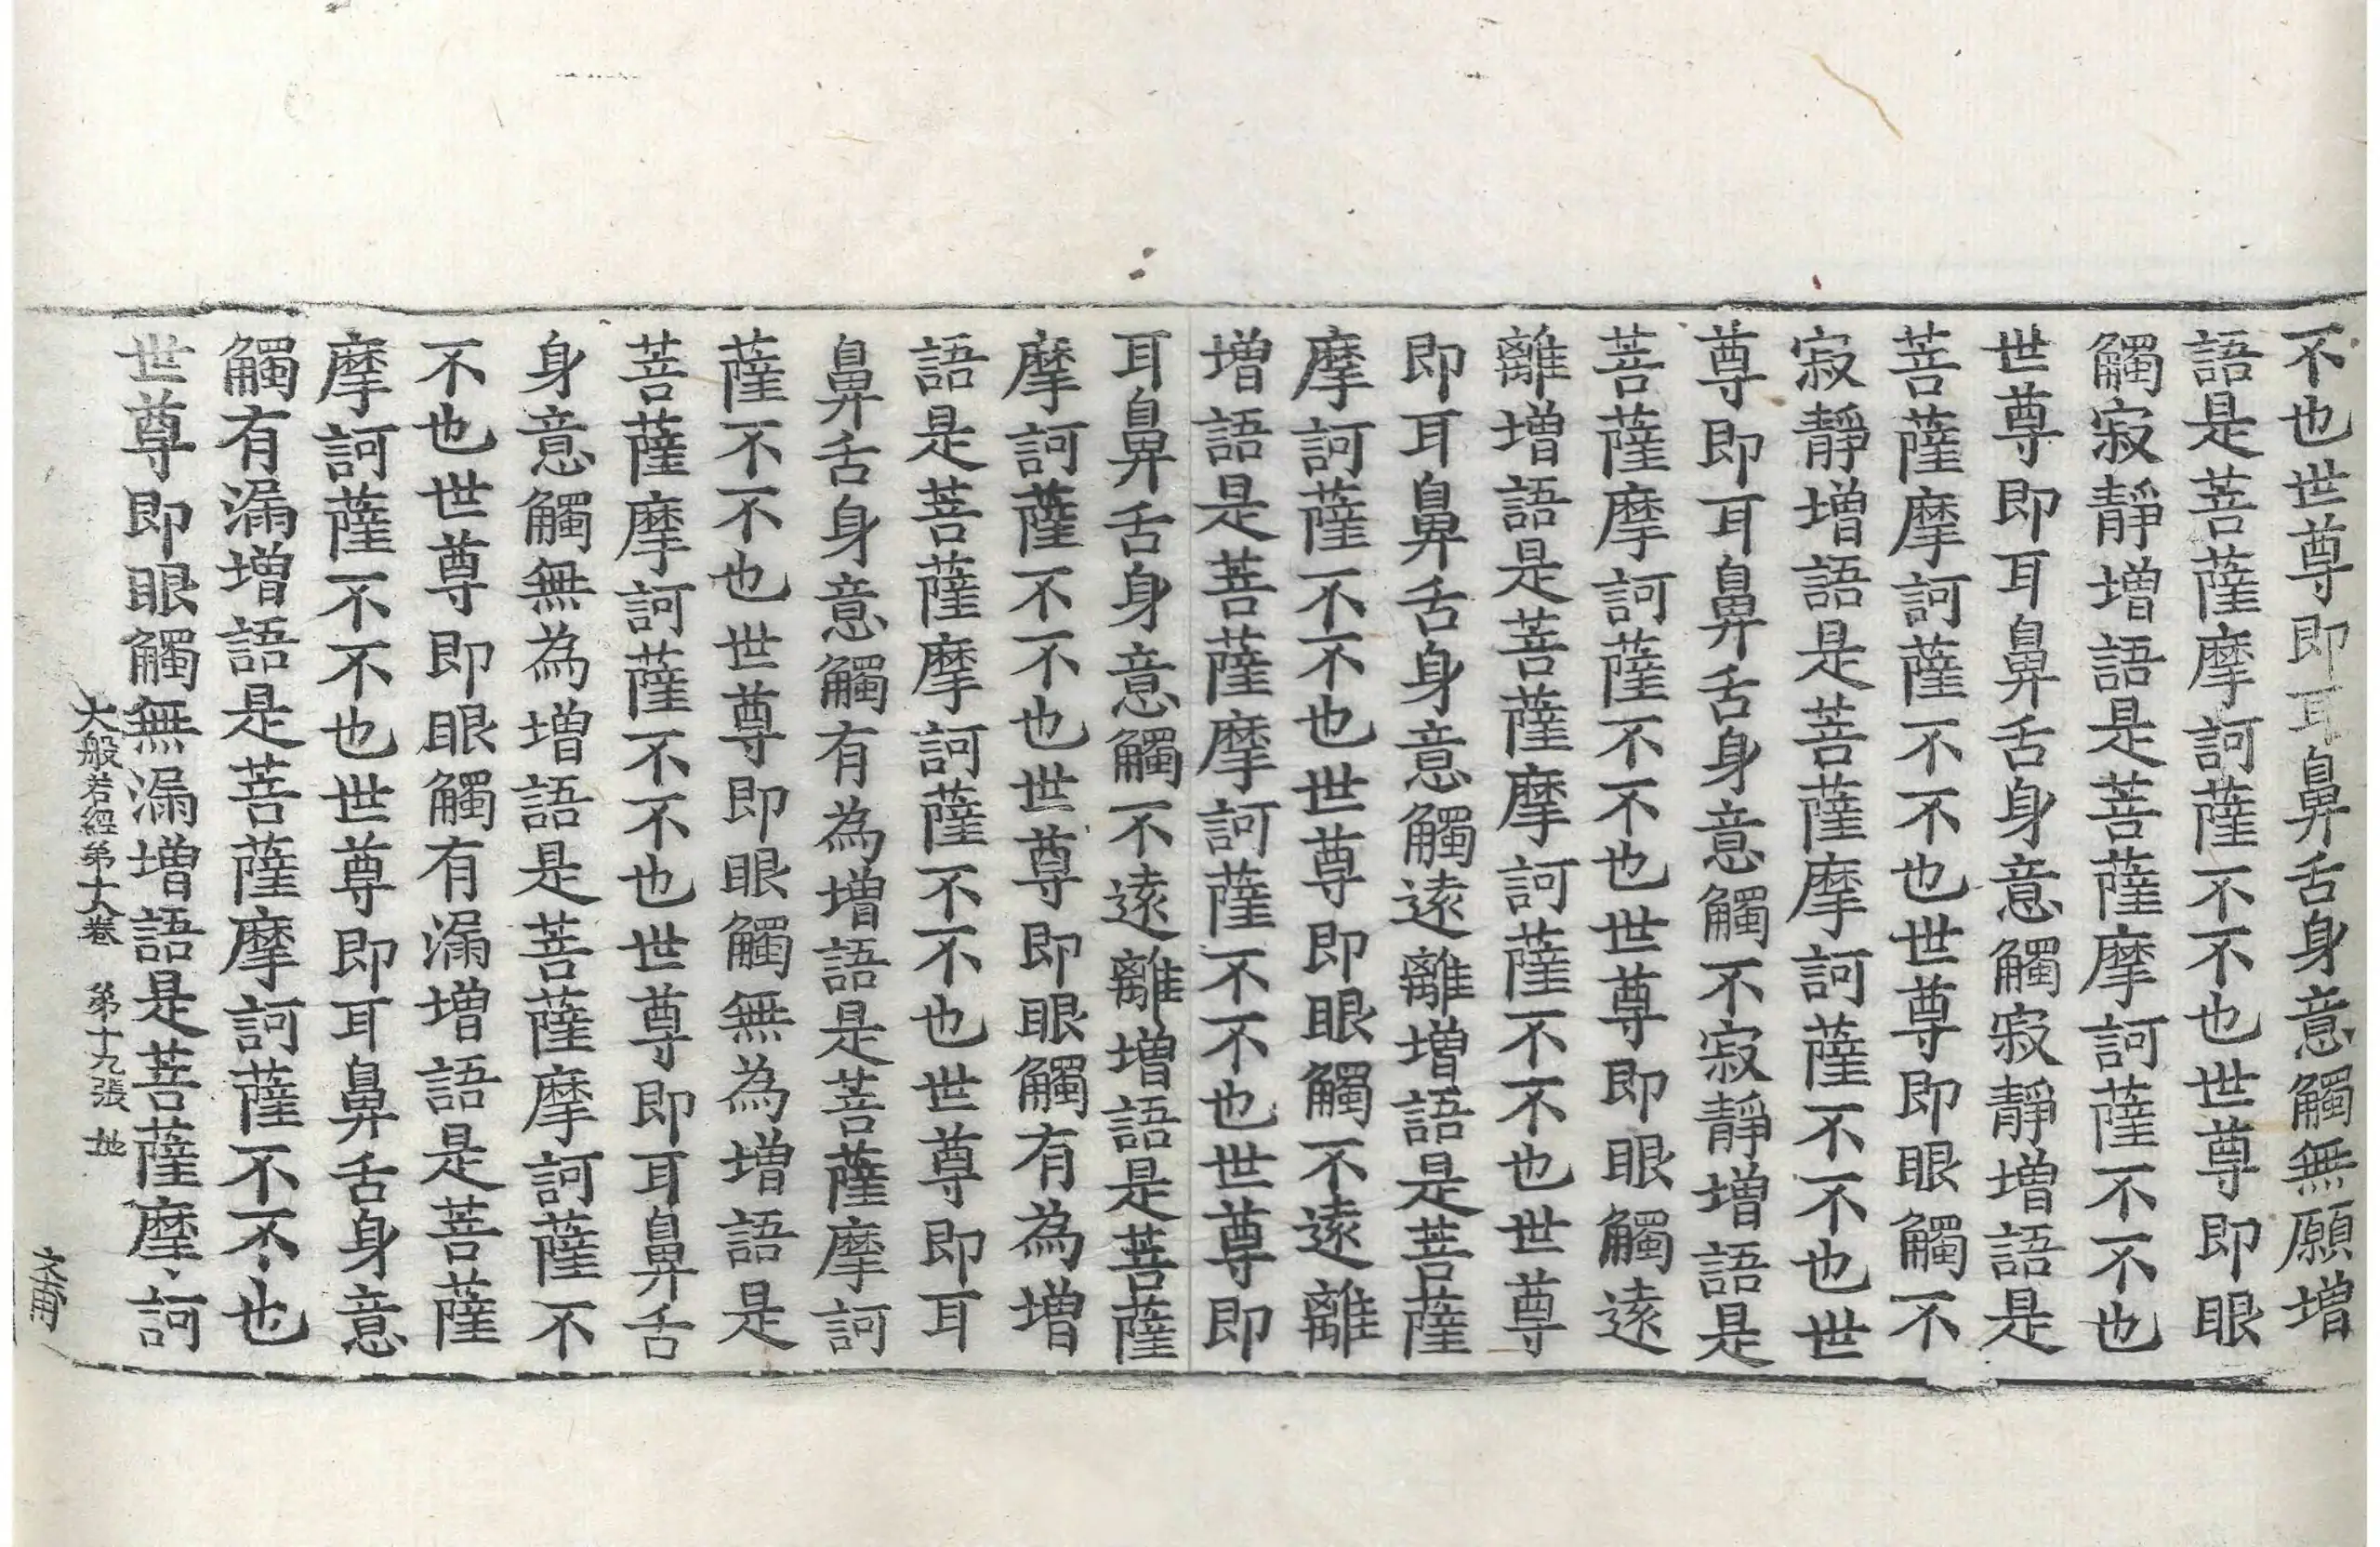 不也世尊即耳鼻舌身意觸無願增
語是菩薩摩訶薩不不也世尊即眼
觸寂靜增語是菩薩摩訶薩不不也
世尊即耳鼻舌身意觸寂靜增語是
菩薩摩訶薩不不也世尊即眼觸不
寂靜增語是菩薩摩訶薩不不也世
尊即耳鼻舌身意觸不寂靜增語是
菩薩摩訶薩不不也世尊即眼觸遠
離增語是菩薩摩訶薩不不也世尊
即耳鼻舌身意觸遠離增語是菩薩
摩訶薩不不也世尊即眼觸不遠離
增語是菩薩摩訶薩不不也世尊即
耳鼻舌身意觸不遠離增語是菩薩
摩訶薩不不也世尊即眼觸有為增
語是菩薩摩訶薩不不也世尊即耳
鼻舌身意觸有為增語是菩薩摩訶
薩不不也世尊即眼觸無為增語是
菩薩摩訶薩不不也世尊即耳鼻舌
身意觸無為增語是菩薩摩訶薩不
不也世尊即眼觸有漏增語是菩薩
摩訶薩不不也世尊即耳鼻舌身意
觸有漏增語是菩薩摩訶薩不不也
世尊即眼觸無漏增語是菩薩摩訶
大般若經第十六卷 第十九張 地